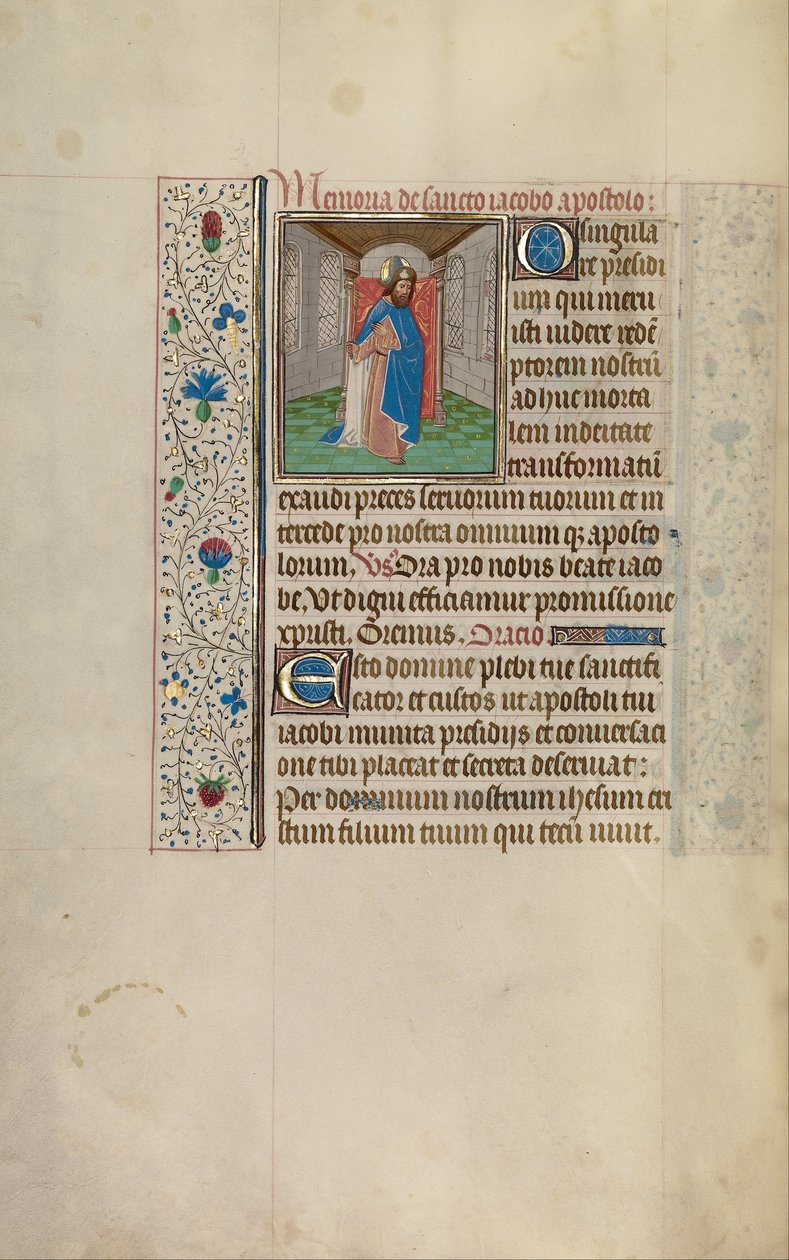 Memoria de sancto iacobo apostolo:
O singula
re presidi
um qui meru
isti videre redē
ptorem nostrū
adhuc morta
lem in deitate
transformatū
exaudi preces seruorum tuorum et in
tercede pro nostra omnium qȝ aposto
lorum, Vs Ora pro nobis beate iaco
be, Vt digni efficiamur promissione
xpristi, Oremus, Oracio
Esto domine plebi tue sanctifi
cator et custos ut apostoli tui
iacobi munita presidijs et conuersaci
one tibi placeat et secreta deseruiat:
Per dominum nostrum ihesum cri
stum filium tuum qui tecū uiuit.